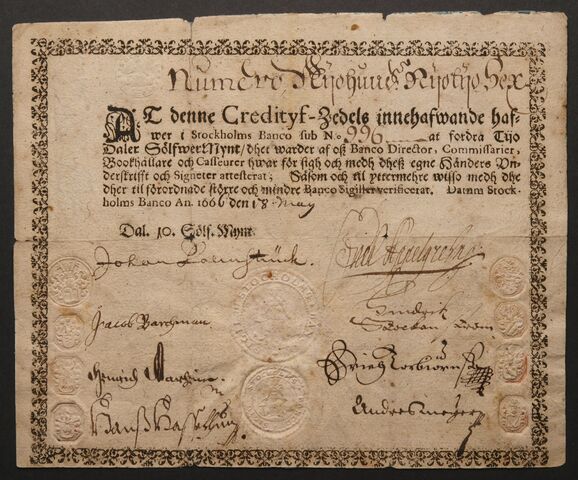 Numero, Nijohund Nijotijo Sex
AT denne Credityf-Zedels innehafwande haf-
wer i Stockholms Banco sub N.o 996 at fordra Tijo
Daler Sölfwer Mynt / dhet warder af oß Banco Director, Commissarier,
Bookhållare och Casseurer hwar för sigh och medh dheß egne Händers Un-
derskrifft och Signeter attesterat; Såsom och til yttermehre wisso medh dhe
dher til förordnade större och mindre Banco Sigiller verificerat. Datum Stock-
holms Banco An. 1666 den 18 May
Dal. 10. Sölf. Mynt.
Johan Palmstruck.
Jacob Barchman
Hindrich
Hanß
Anders Meyer